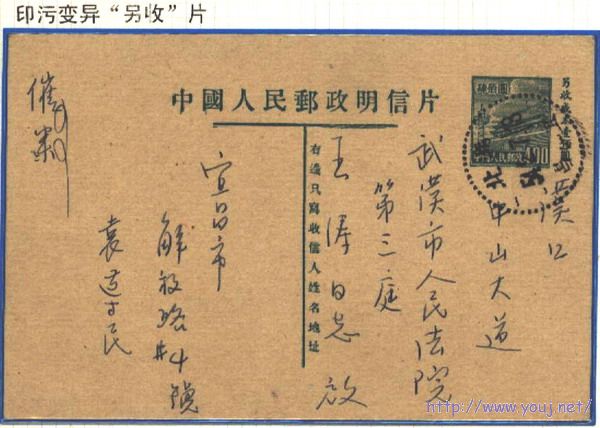 印污变异“另收”片
中國人民郵政明信片
另收成本壹佰圓
肆佰圓
中国人民郵政
400
漢口
中山大道
武漢市人民法院
第三庭
王 同志 啟
右邊只寫收信人姓名地址
宜昌市
解放路#4號
袁道民
http://www.youj.net/